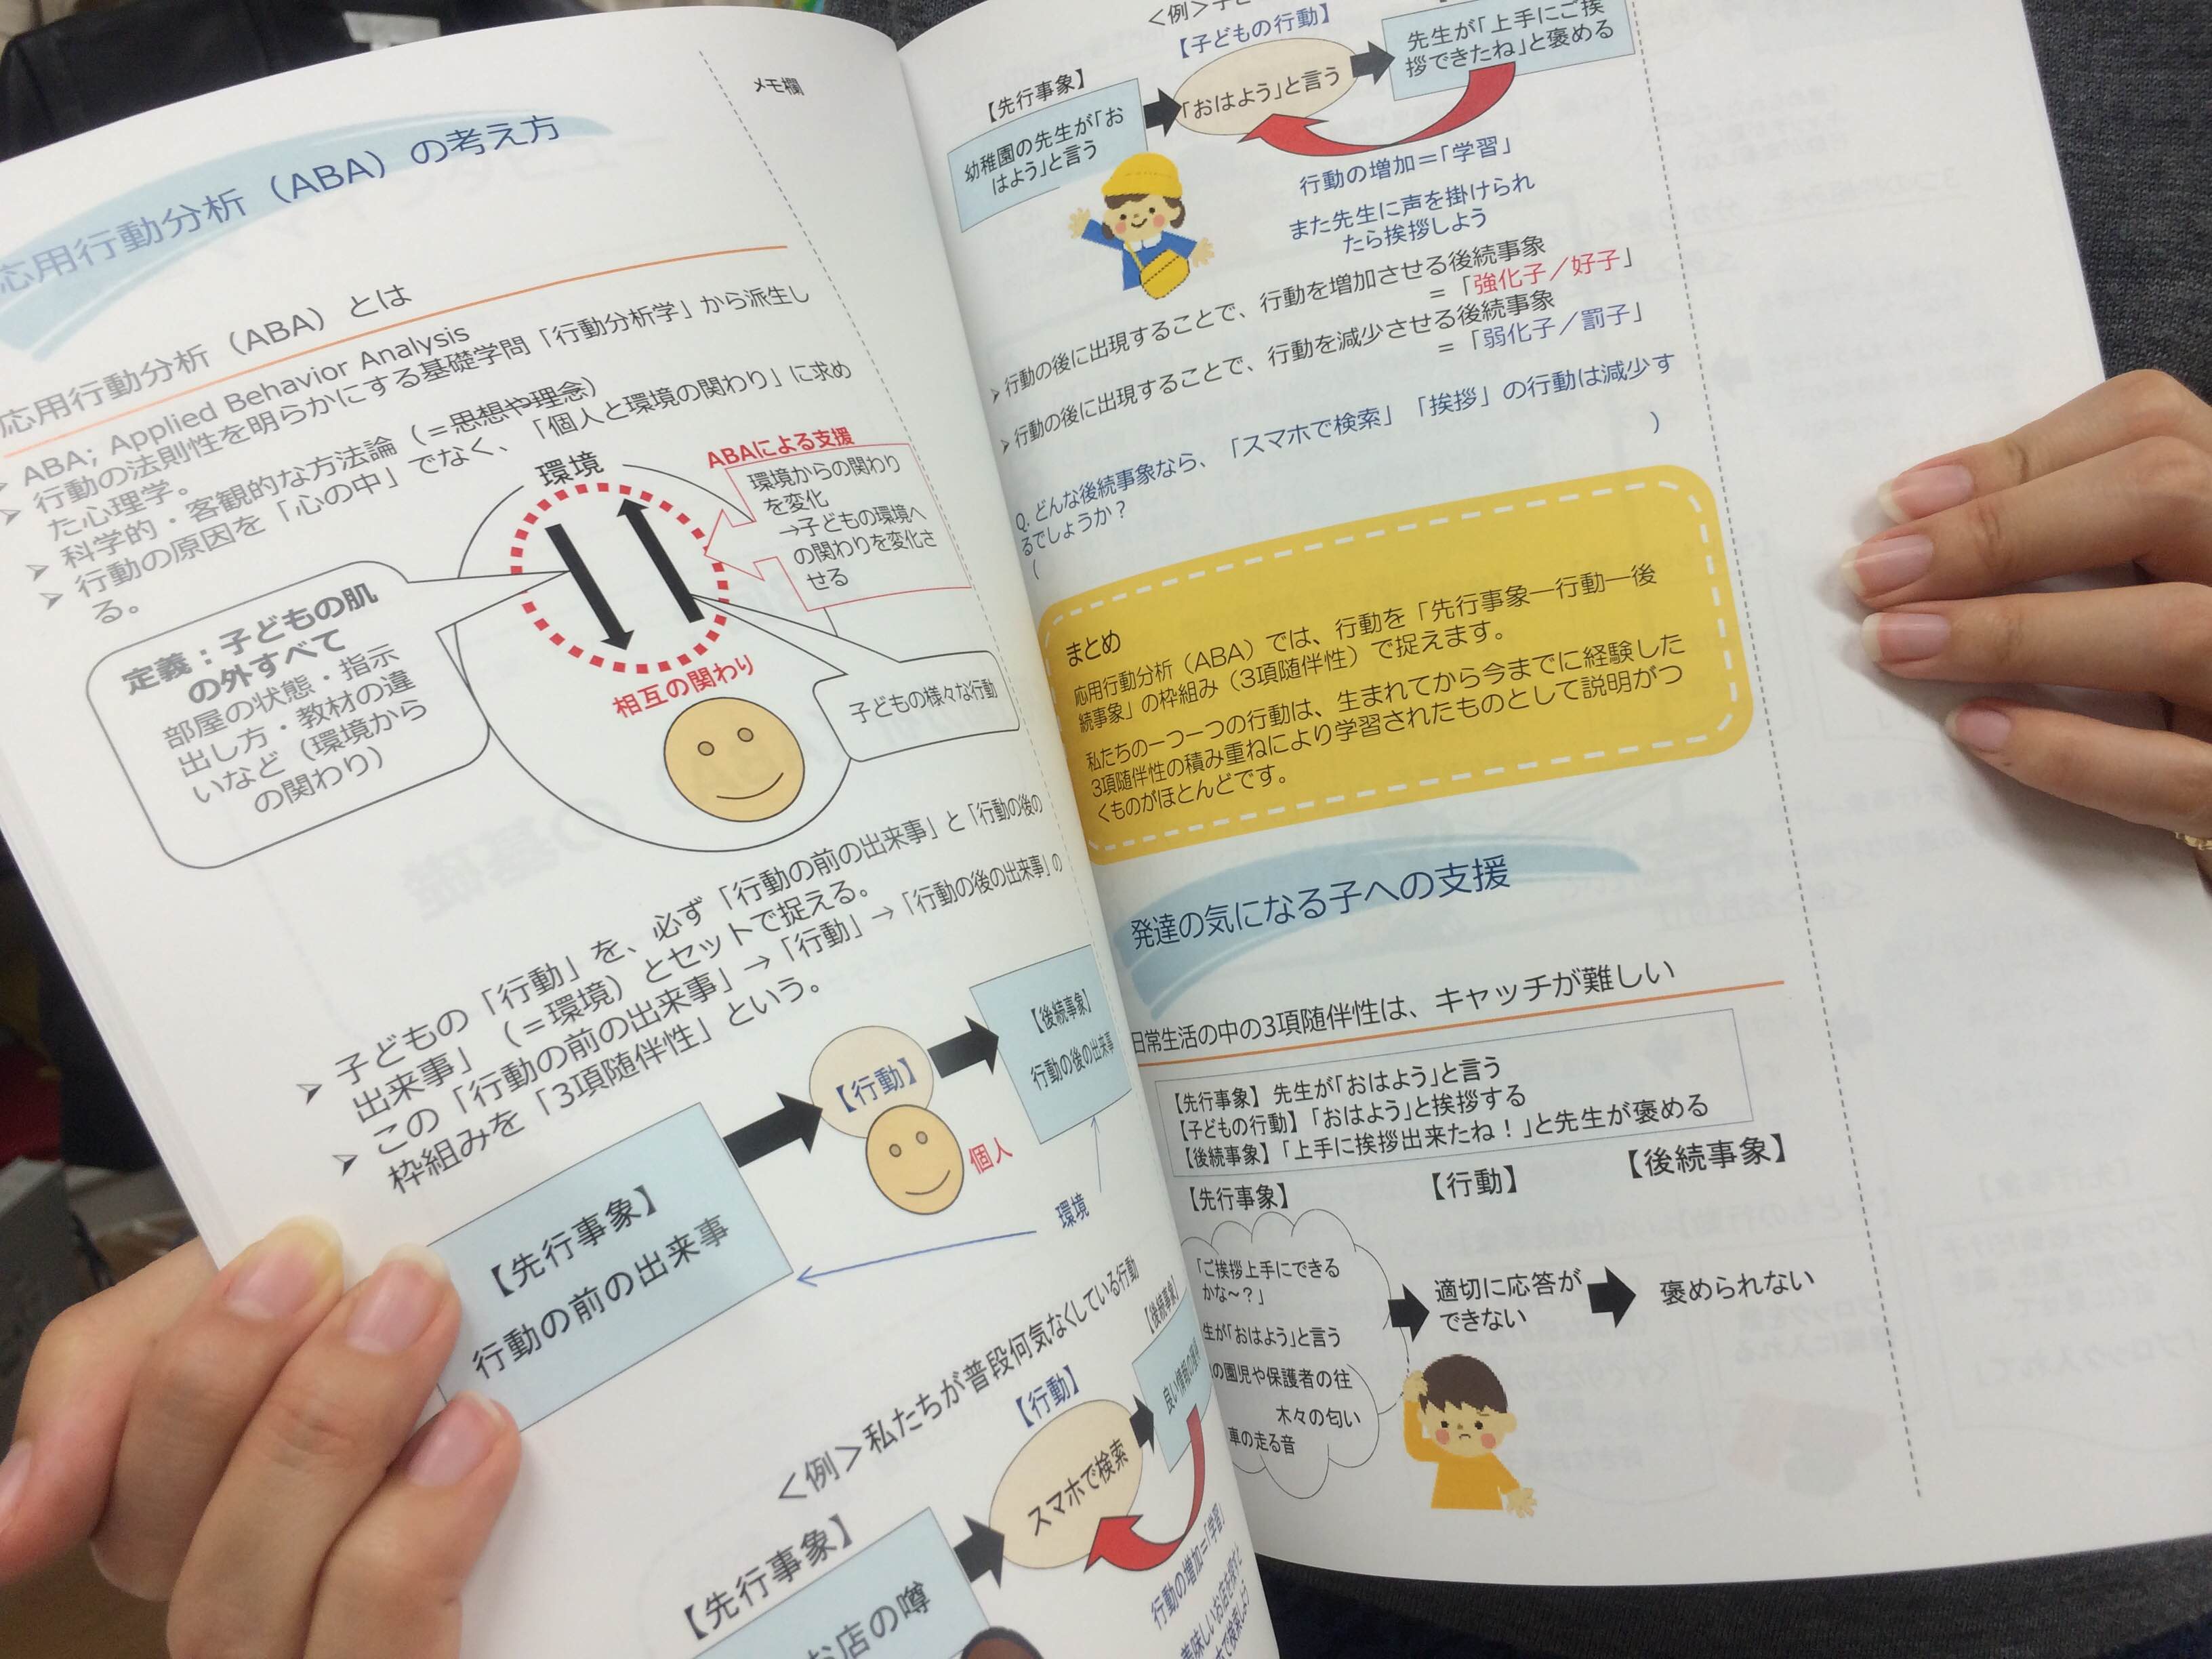 メモ欄
応用行動分析（ABA）の考え方
応用行動分析（ABA）とは
ABA; Applied Behavior Analysis
行動の法則性を明らかにする基礎学問「行動分析学」から派生し
た心理学。
科学的・客観的な方法論（＝思想や理念）
行動の原因を「心の中」でなく、「個人と環境の関わり」に求め
る。
環境
ABAによる支援
環境からの関わり
を変化
→子どもの環境へ
の関わりを変化さ
せる
定義：子どもの肌
の外すべて
部屋の状態・指示
出し方・教材の違
いなど（環境から
の関わり）
相互の関わり
子どもの様々な行動
➢ 子どもの「行動」を、必ず「行動の前の出来事」と「行動の後の
出来事」（＝環境）とセットで捉える。
➢ この「行動の前の出来事」→「行動」→「行動の後の出来事」の
枠組みを「3項随伴性」という。
【先行事象】
行動の前の出来事
【行動】
個人
【後続事象】
行動の後の出来事
環境
＜例＞私たちが普段何気なくしている行動
【先行事象】
お店の噂
【行動】
スマホで検索
【後続事象】
行動の増加＝「学習」
＜例＞子ど
【先行事象】
幼稚園の先生が「お
はよう」と言う
【子どもの行動】
「おはよう」と言う
先生が「上手にご挨
拶できたね」と褒める
行動の増加＝「学習」
また先生に声を掛けられ
たら挨拶しよう
➢ 行動の後に出現することで、行動を増加させる後続事象
＝「強化子／好子」
➢ 行動の後に出現することで、行動を減少させる後続事象
＝「弱化子／罰子」
Q. どんな後続事象なら、「スマホで検索」「挨拶」の行動は減少す
るでしょうか？
（　）
まとめ
応用行動分析（ABA）では、行動を「先行事象―行動―後
続事象」の枠組み（3項随伴性）で捉えます。
私たちの一つ一つの行動は、生まれてから今までに経験した
3項随伴性の積み重ねにより学習されたものとして説明がつ
くものがほとんどです。
発達の気になる子への支援
日常生活の中の3項随伴性は、キャッチが難しい
【先行事象】先生が「おはよう」と言う
【子どもの行動】「おはよう」と挨拶する
【後続事象】「上手に挨拶出来たね！」と先生が褒める
【先行事象】
【行動】
【後続事象】
「ご挨拶上手にできる
かな～？」
生が「おはよう」と言う
の園児や保護者の往
木々の匂い
車の走る音
適切に応答が
できない
褒められない